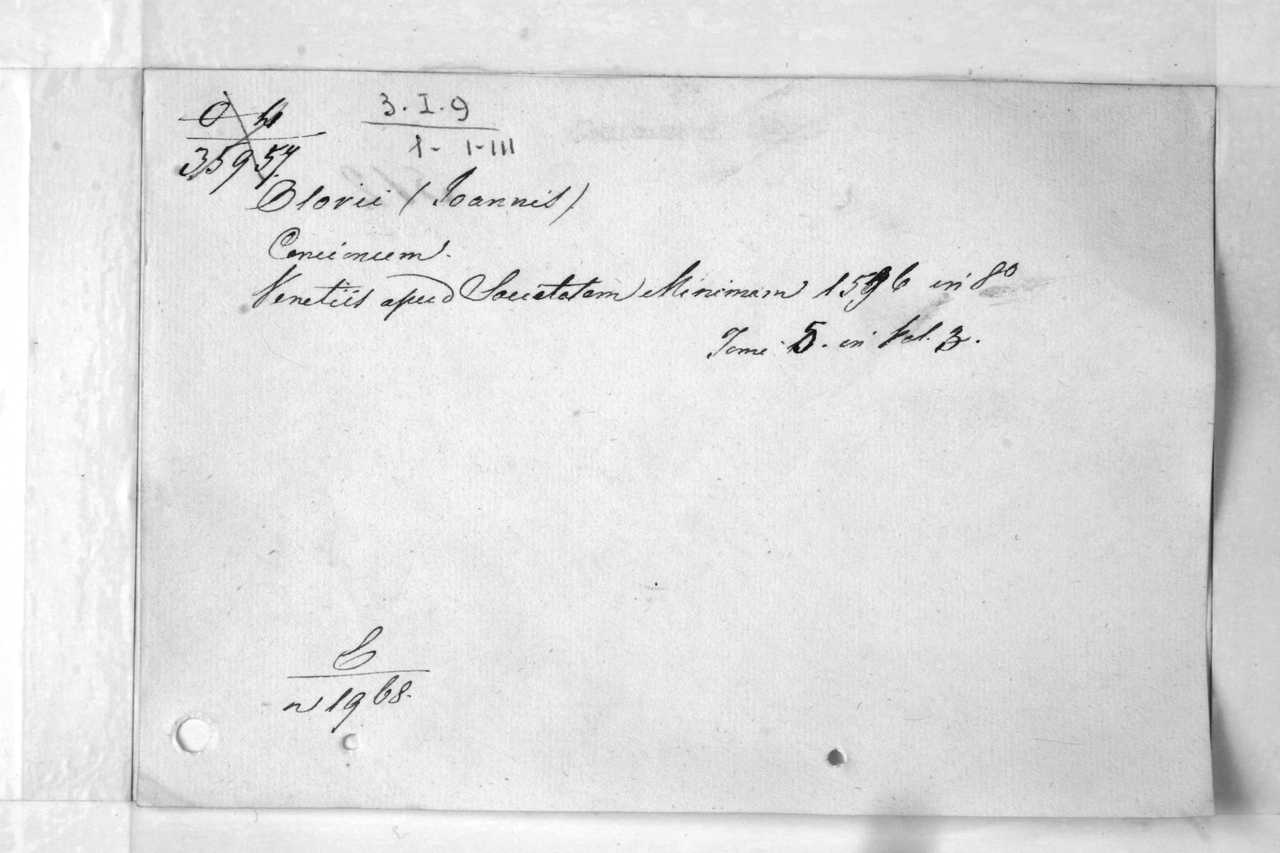 3. I. 9
1 - I-III
359 57.
Olorii (Joannis)
Concionum.
Venetiis apud Societatem Minimam 1596 in 8º
Tomi 5. in Vol. 3.
C
n 1968.